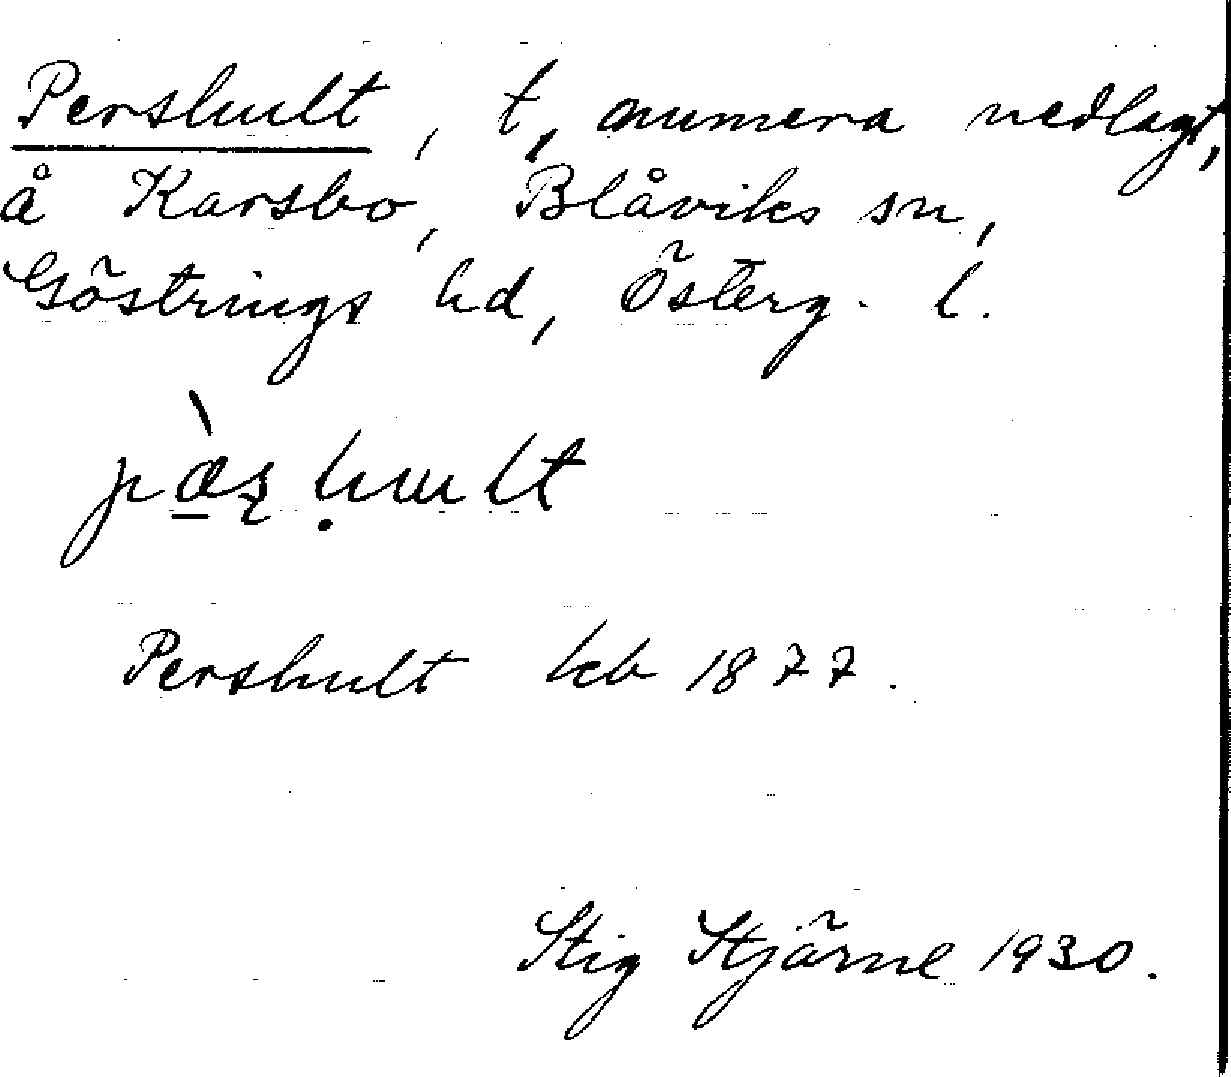 Pershult, t, numera nedlagt,
å Karsbo, Blåviks sn,
Göstrings hd, Österg. l.
pæ̀ʂḥult
Pershult kb 1877.
Stig Stjärne 1930.